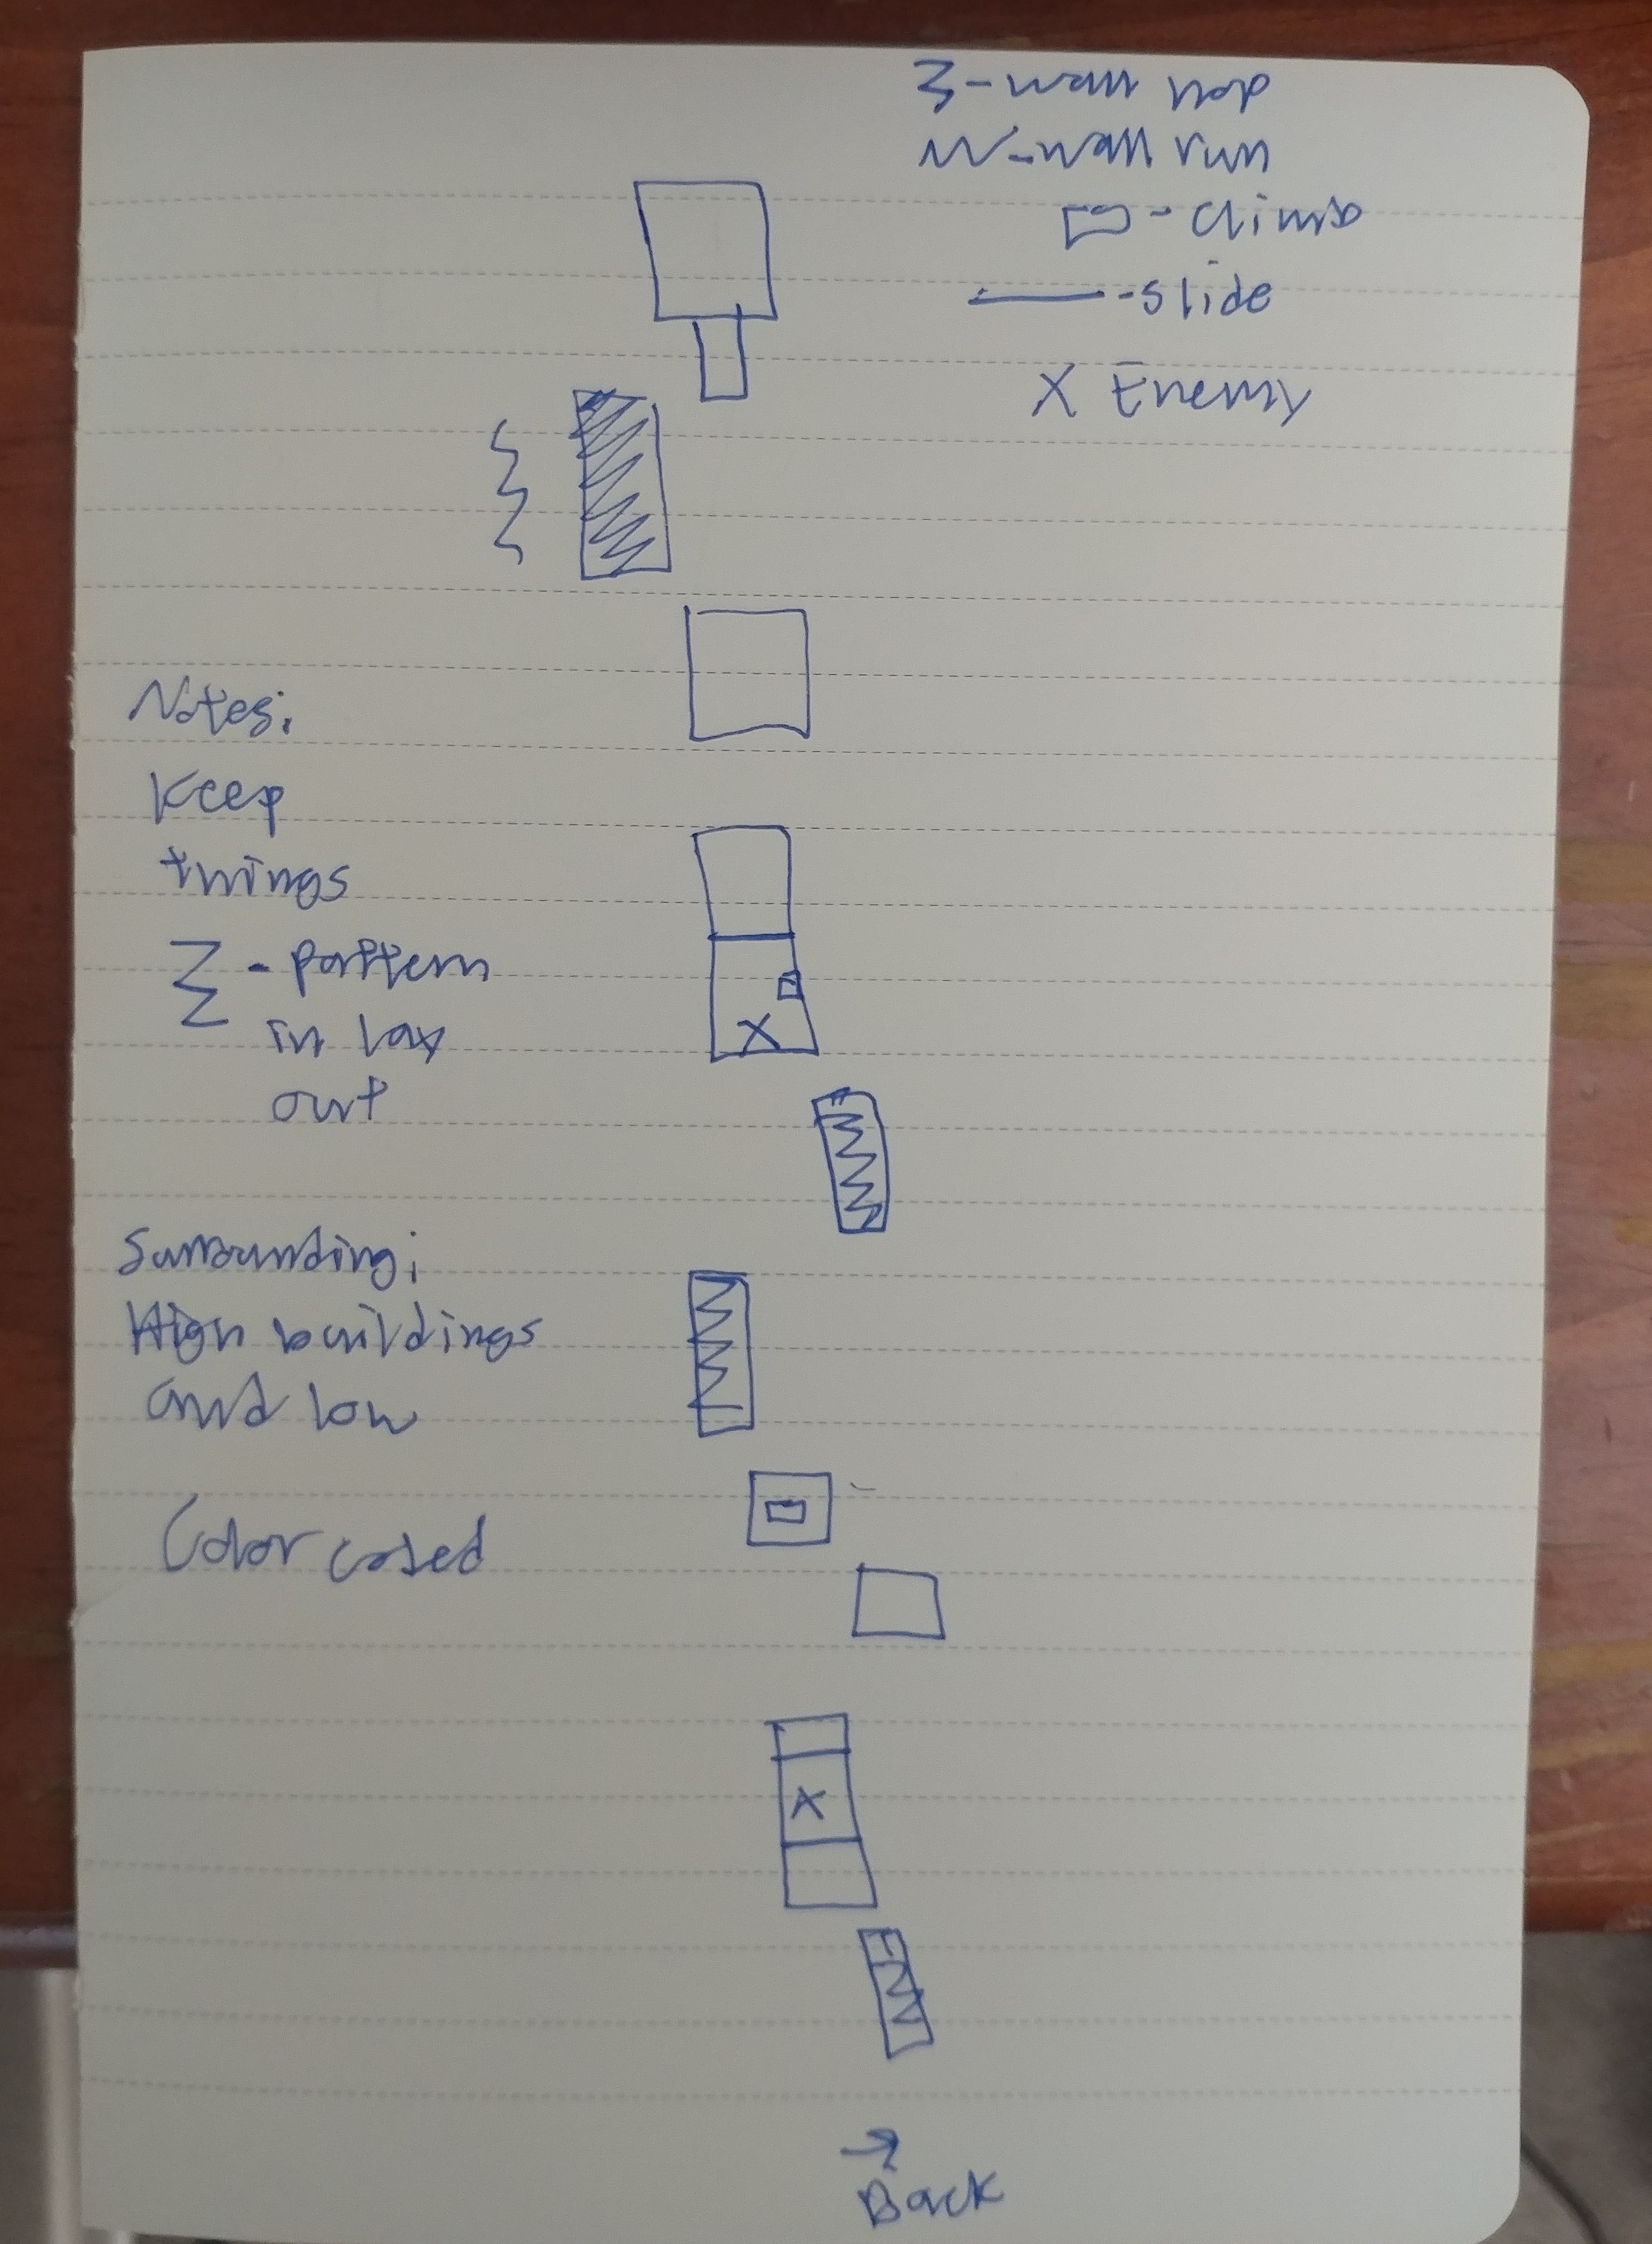 Ʒ-wall hop
W-wall run
-Climb
-slide
X Enemy
Notes:
Keep
things
Σ-pattern
in lay
out
X
Surrounding:
High buildings
and low
Color coded
X
→
Back